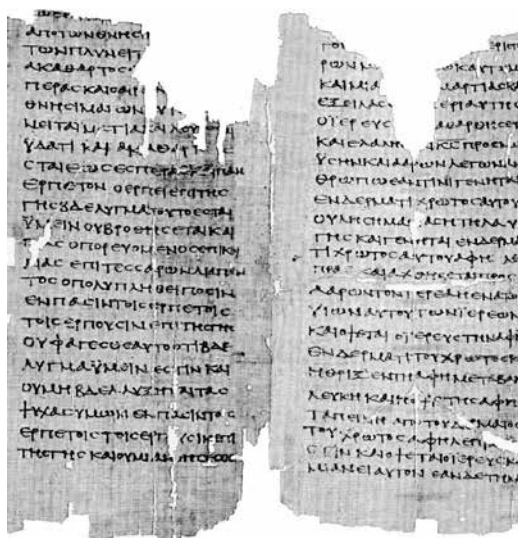 ΑΠΟΤΩΝΘΝΗϹΙ
ΤΩΝΠΛΥΝΕΙΤ
ΑΚΑΘΑΡΤΟϹ
ΠΕΡΑϹΚΑΙΟΑΙΡ
ΘΝΗϹΙΜΑΙΩΝ
ΝΕΙΤΑΙΜΑΤΙΑΚΑΙΛΟΥ
ΥΔΑΤΙ ΚΑΙ ΑΚΑΘΑΡΤ
ϹΤΑΙΕΩϹΕϹΠΕΡΑϹΚΑΙΠΑΝ
ΕΡΠΕΤΟΝΟΕΡΠΕΙΕΠΙΤΗϹ
ΓΗϹΒΔΕΛΥΓΜΑΤΟΥΤΟΕϹΤΑΙ
ΫΜΕΙΝΟΥΒΡΩΘΗϹΕΤΑΙΚΑΙ
ΠΑϹΟΠΟΡΕΥΟΜΕΝΟϹΕΠΙΚΟΙ
ΛΙΑϹ ΕΠΙΤΕϹϹΑΡΩΝΔΙΑΠΑΝ
ΤΟϹΟΠΟΛΥΠΛΗΘΕΙΠΟϹΙΝ
ΕΝΠΑϹΙΝΤΟΙϹΕΡΠΕΤΟΙϹ
ΤΟΙϹΕΡΠΟΥϹΙΝΕΠΙΤΗϹΓΗϹ
ΟΥΦΑΓΕϹΘΕΑΥΤΟΟΤΙΒΔΕ
ΛΥΓΜΑΫΜΕΙΝΕϹΤΙΝΚΑΙ
ΟΥΜΗΒΔΕΛΥΞΗΤΑΙΤΑϹ
ΨΥΧΑϹΥΜΩΝΕΝΠΑϹΙΝΤΟΙϹ
ΕΡΠΕΤΟΙϹΤΟΙϹΕΡΠΟΥϹΙΝΕΠΙ
ΤΗϹΓΗϹΚΑΙΟΥΜΙΑΝΘΗϹΕϹΘΕ
ΡΩΝ
ΚΑΙΜΙΑ ΑΜΑΡΤΙΑϹΚΑΙ
ΕΞΕΙΛΑϹ ΠΕΡΙΑΥΤΗϹ
ΟΪΕΡΕΥϹ ΚΑΘΑΡΙϹΘ
ΚΑΙΕΛΑΛΗϹ ΚϹΠΡΟϹΜΩ
ΥϹΗΝΚΑΙΑΑΡΩΝΛΕΓΩΝΑΝ
ΘΡΩΠΩΕΑΝΤΙΝΙΓΕΝΗΤΑΙ
ΕΝΔΕΡΜΑΤΙΧΡΩΤΟϹΑΥΤΟΥ
ΟΥΛΗϹΗΜΑϹΙΑϹΗΤΗΛΑΥ
ΓΗϹΚΑΙΓΕΝΗΤΑΙΕΝΔΕΡΜΑ
ΤΙΧΡΩΤΟϹΑΥΤΟΥΑΦΗΛΕ
ΠΡΑϹΚΑΙΑΧΘΗϹΕΤΑΙΠΡΟϹ
ΑΑΡΩΝΤΟΝΪΕΡΕΑΗΕΝΑΤΩ
ΥΙΩΝΑΥΤΟΥΤΩΝΪΕΡΕΩΝ
ΚΑΙΟΨΕΤΑΙΟΪΕΡΕΥϹΤΗΝΑΦΗ
ΕΝΔΕΡΜΑΤΙΤΟΥΧΡΩΤΟϹΚ
ΗΘΡΙΞΕΝΤΗΑΦΗΜΕΤΑΒΑΛ
ΛΕΥΚΗΚΑΙΗΟΨΙϹΤΗϹΑΦΗ
ΤΑΠΕΙΝΗΑΠΟΤΟΥΔΕΡΜΑΤΟϹ
ΤΟΥΧΡΩΤΟϹΑΦΗΛΕΠΡΑϹ
ϹΤΙΝΚΑΙΟΨΕΤΑΙΟΪΕΡΕΥϹΚ
ΜΙΑΝΕΙΑΥΤΟΝΕΑΝΔΕΤΗΛΑ